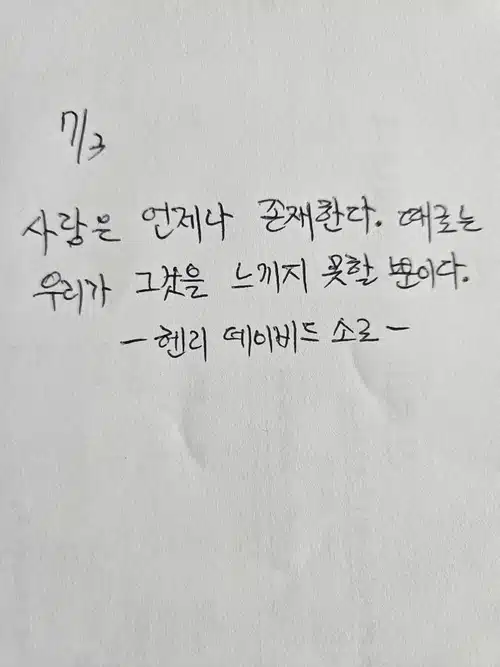 7/3
사랑은 언제나 존재한다. 때로는
우리가 그것을 느끼지 못할 뿐이다.
- 헨리 데이비드 소로 -